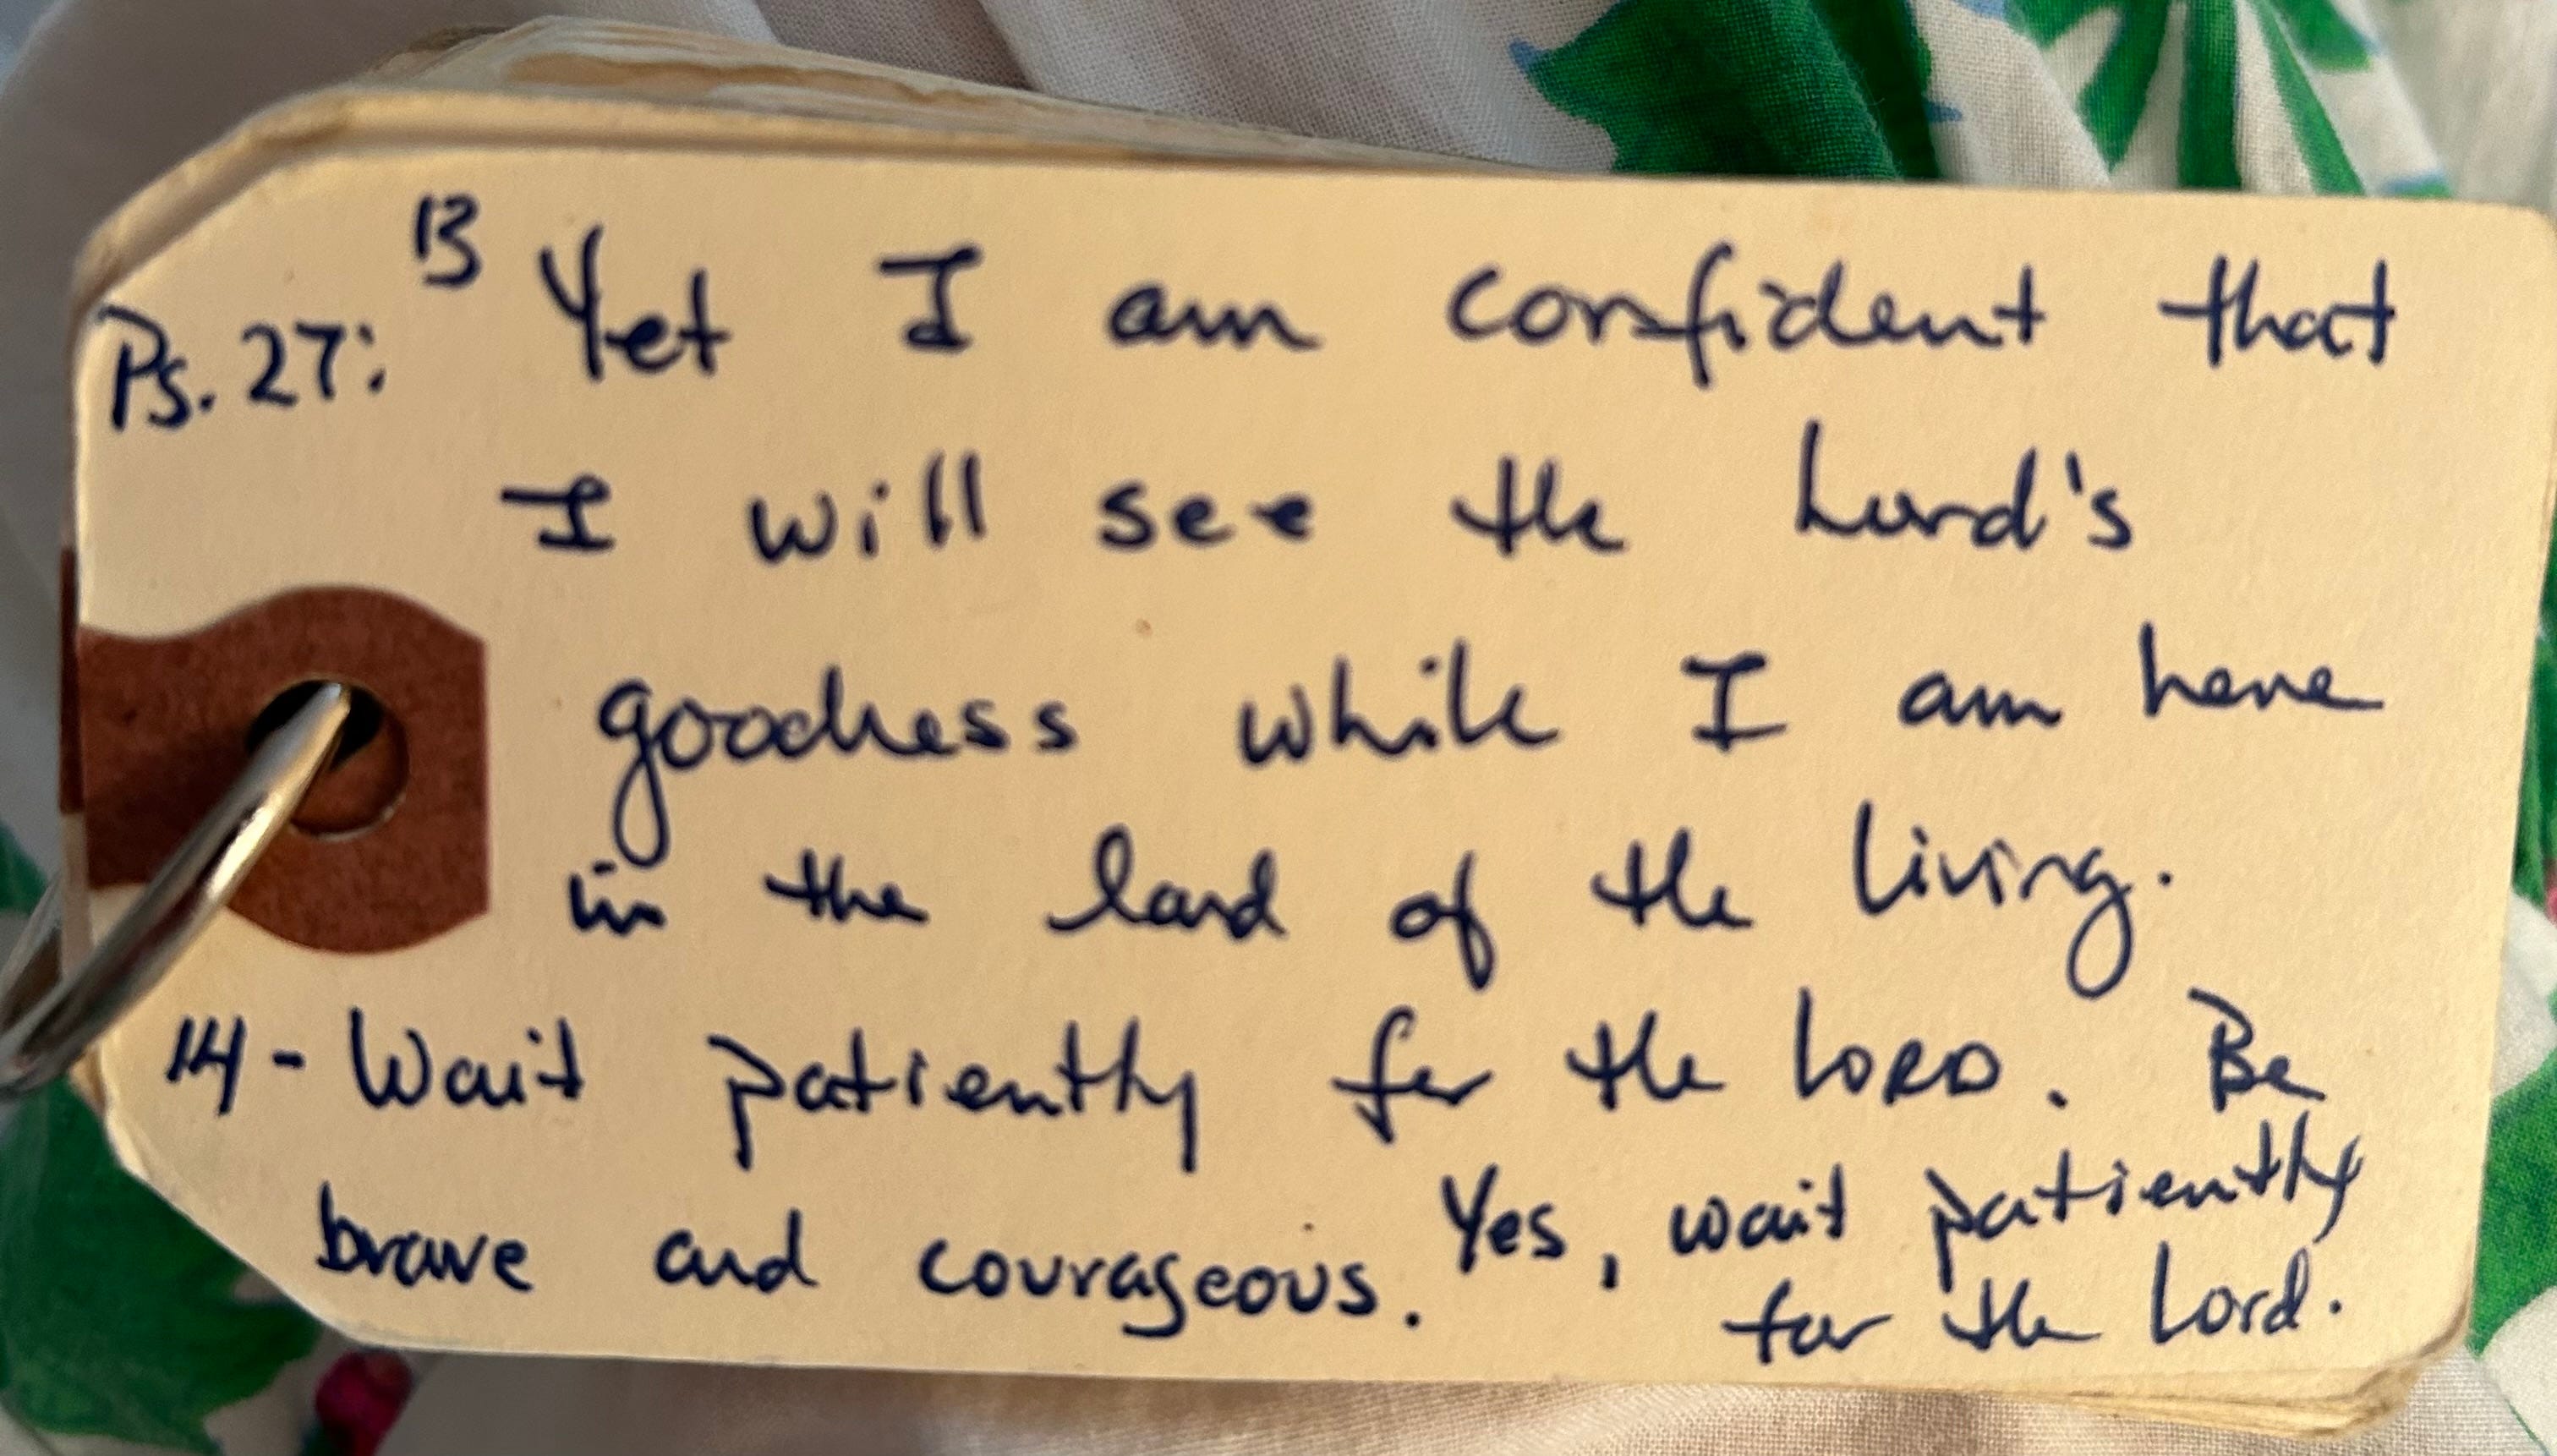 Ps. 27: 13 Yet I am confident that
I will see the Lord's
goodness while I am here
in the land of the living.
14 - Wait patiently for the LORD. Be
brave and courageous. Yes, wait patiently
for the Lord.